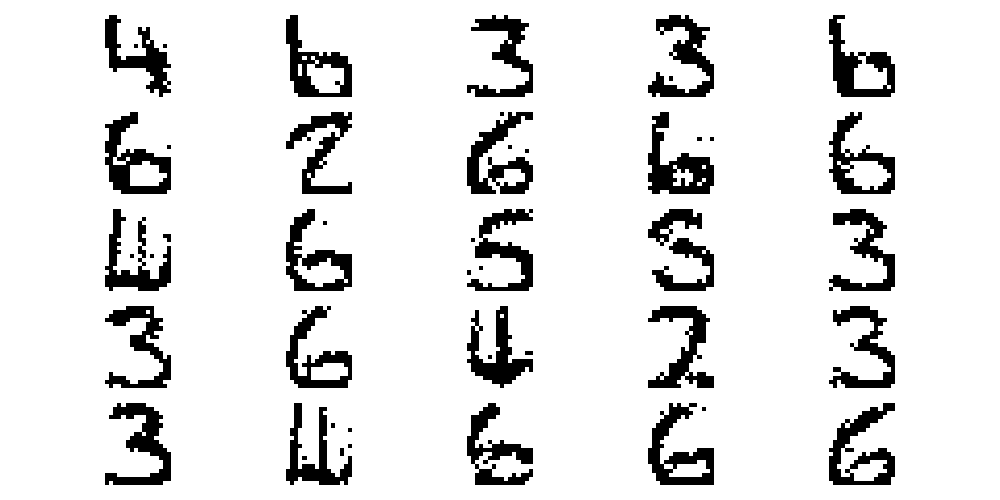 4 6 3 3 6
6 2 6 6 6
6 5 5 3
3 6 2 3
3 6 6 6